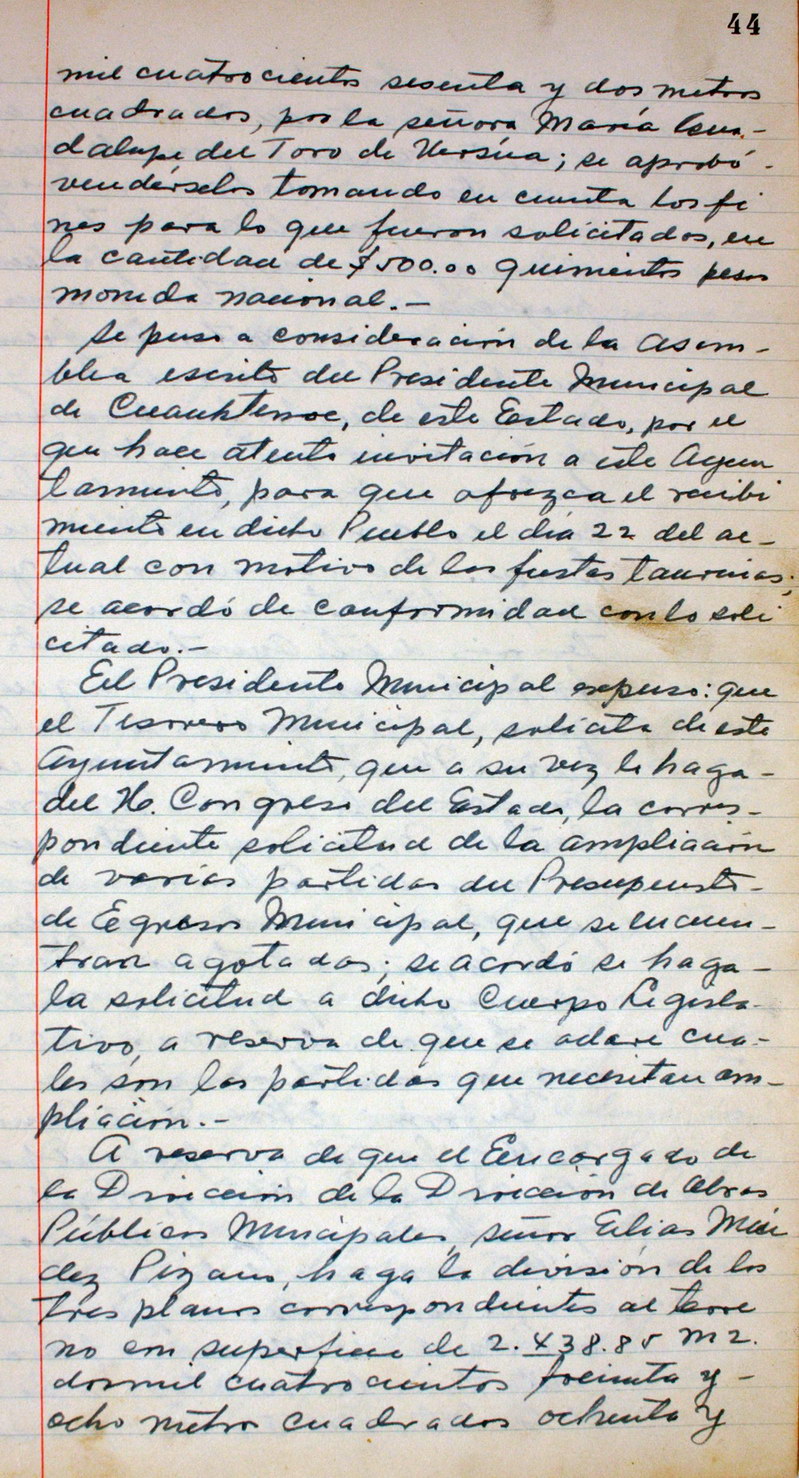 44
mil cuatrocientos sesenta y dos metros
cuadrados, por la señora María Gua-
dalupe del Toro de Ursúa; se aprobó-
vendérselos tomando en cuenta los fi
nes para lo que fueron solicitados, en
la cantidad de $500.00 quinientos pesos
moneda nacional.-
Se puso a consideración de la Asam-
blea escrito del Presidente Municipal
de Cuauhtemoc, de este Estado, por el
que hace atenta invitación a este Ayun
tamiento, para que ofrezca el recibi
miento en dicho Pueblo el día 22 del ac-
tual con motivo de las fiestas taurinas;
se acordó de conformidad con lo soli
citado.-
El Presidente Municipal expuso: que
el Tesorero Municipal, solicita de este
Ayuntamiento, que a su vez le haga-
del H. Congreso del Estado, la corres-
pondiente solicitud de la ampliación
de varias partidas del Presupuesto-
de Egresos Municipal, que se encuen-
tran agotadas; se acordó se haga-
la solicitud a dicho Cuerpo Legisla-
tivo, a reserva de que se aclare cua-
les son las partidas que necesitan am-
pliación.-
A reserva de que el Encargado de
la Dirección de la Dirección de Obras
Públicas Municipales, señor Elias Mén
dez Pizano, haga la división de los
tres planos correspondientes al terre
no con superficie de 2.438.85 m2.
dos mil cuatrocientos treinta y-
ocho metros cuadrados ochenta y